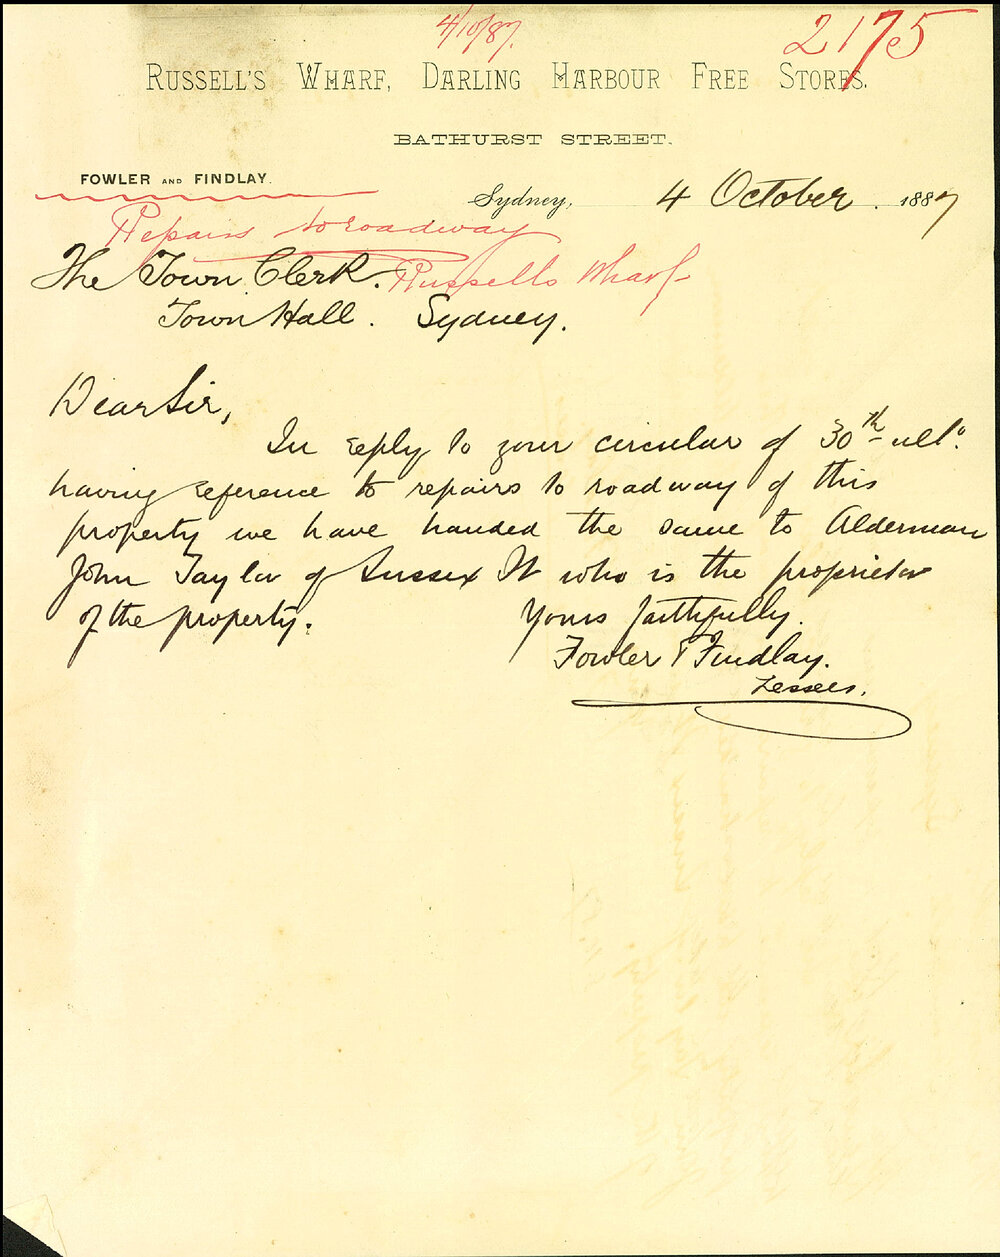 4/10/87.
2175
RUSSELL'S WHARF, DARLING HARBOUR FREE STORES.
BATHURST STREET.
FOWLER AND FINDLAY.
Sydney, 4 October. 1887
Repairs to roadway
Russells Wharf
The Town Clerk.
Town Hall. Sydney.
Dear Sir,
In reply to your circular of 30th ulto.
having reference to repairs to roadway of this
property we have handed the same to Alderman
John Taylor of Sussex St who is the proprietor
of the property.
Yours faithfully.
Fowler & Findlay.
Lessees.